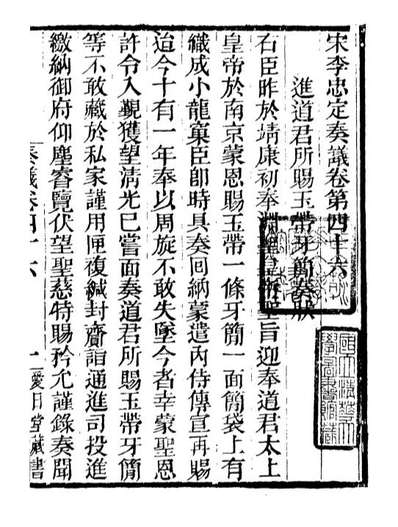 宋李忠定奏議卷第四十六
進道君所賜玉帶牙簡奏狀
右臣昨於靖康初奉淵聖皇帝聖旨迎奉道君太上
皇帝於南京蒙恩賜玉帶一條牙簡一面簡袋上有
織成小龍稾臣卽時具奏囘納蒙遣内侍傳宣再賜
迨今十有一年奉以周旋不敢失墜今者幸蒙聖恩
許令入覲獲望淸光已嘗面奏道君所賜玉帶牙簡
等不敢藏於私家謹用匣複緘封齎詣通進司投進
繳納御府仰塵睿覽伏望聖慈特賜矜允謹錄奏聞
奏議卷四十六
一
愛日堂藏書